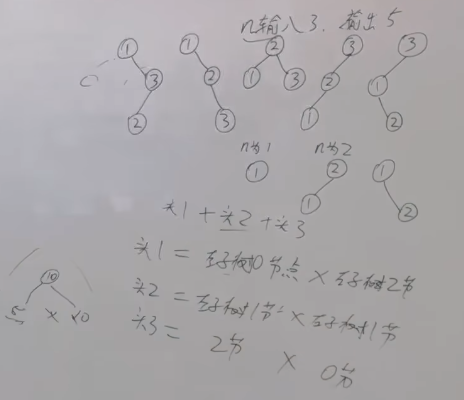 n输入3. 输出5
① ① ② ③ ③
③ ② ① ③ ② ①
② ③ ① ②
n为1 n为2
① ② ①
① ②
头1 + 头2 + 头3
头1 = 左子树0节点 × 右子树2节
头2 = 左子树1节 × 右子树1节
头3 = 2节 × 0节
⑩
5 × 10